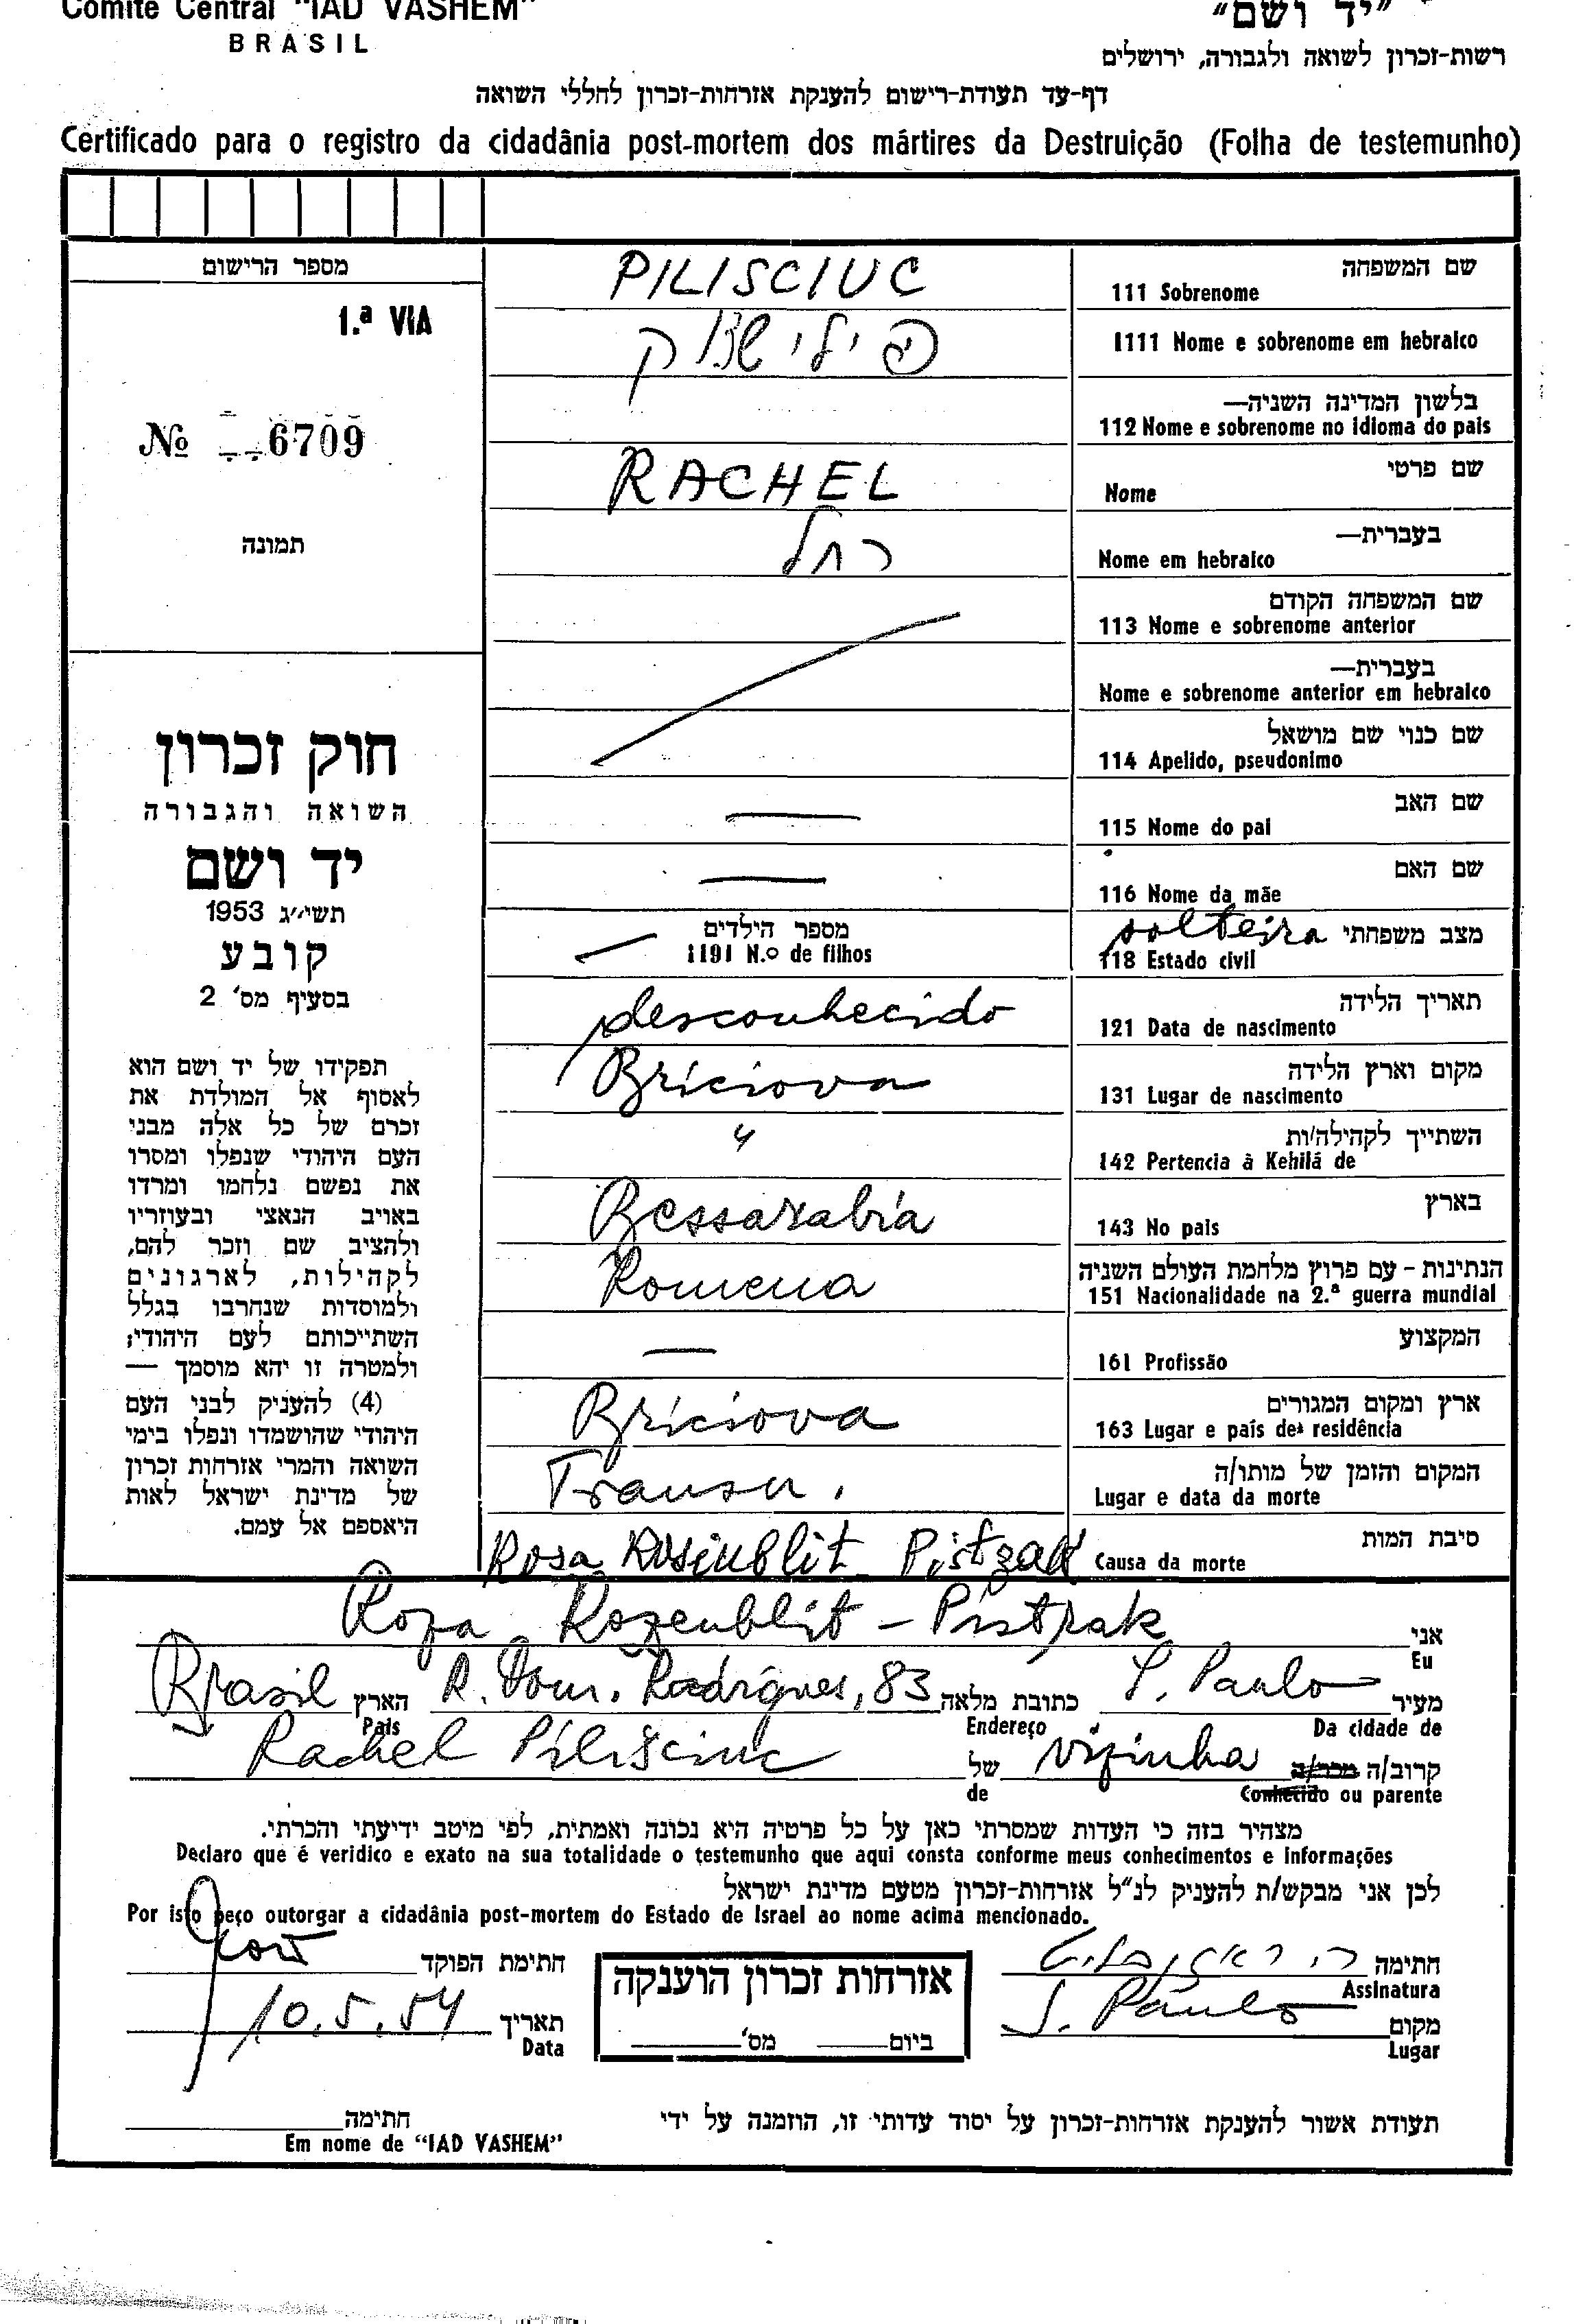 Comité Central "IAD VASHEM"
BRASIL
"יד ושם"
רשות-זכרון לשואה ולגבורה, ירושלים
דף-עד תעודת-רישום להענקת אזרחות-זכרון לחללי השואה
Certificado para o registro da cidadânia post-mortem dos mártires da Destruição (Folha de testemunho)
מספר הרישום
1.ª VIA
№ 6709
תמונה
חוק זכרון
השואה והגבורה
יד ושם
תשי"ג 1953
קובע
בסעיף מס' 2
תפקידו של יד ושם הוא
לאסוף אל המולדת את
זכרם של כל אלה מבני
העם היהודי שנפלו ומסרו
את נפשם נלחמו ומרדו
באויב הנאצי ובעוזריו
ולהציב שם וזכר להם,
לקהילות, לארגונים
ולמוסדות שנחרבו בגלל
השתייכותם לעם היהודי;
ולמטרה זו יהא מוסמך —
(4) להעניק לבני העם
היהודי שהושמדו ונפלו בימי
השואה והמרי אזרחות זכרון
של מדינת ישראל לאות
היאספם אל עמם.
שם המשפחה
111 Sobrenome PILISCIUC
1111 Nome e sobrenome em hebraico
בלשון המדינה השניה—
112 Nome e sobrenome no idioma do pais
שם פרטי
Nome RACHEL
בעברית—
Nome em hebraico רחל
שם המשפחה הקודם
113 Nome e sobrenome anterior
בעברית—
Nome e sobrenome anterior em hebraico
שם כנוי שם מושאל
114 Apelido, pseudonimo
שם האב
115 Nome do pai —
שם האם
116 Nome da mãe —
מצב משפחתי solteira
118 Estado civil
מספר הילדים
1191 N.º de filhos —
תאריך הלידה
121 Data de nascimento desconhecido
מקום וארץ הלידה
131 Lugar de nascimento Briciova
השתייך לקהילה/ות
142 Pertencia à Kehilá de "
בארץ
143 No pais Bessarabia
הנתינות - עם פרוץ מלחמת העולם השניה
151 Nacionalidade na 2.ª guerra mundial Romena
המקצוע
161 Profissão —
ארץ ומקום המגורים
163 Lugar e país de residência Briciova
המקום והזמן של מותו/ה
Lugar e data da morte Transn.
סיבת המות
Causa da morte Rosa Rosenblit Pistzak
אני Roza Rozenblit - Pistrak
Eu
מעיר S. Paulo כתובת מלאה R. Dom. Rodrigues, 83 הארץ Brasil
Da cidade de Endereço Pais
קרוב/ה מכר/ה vizinha של Rachel Pilisciuc
Conhecido ou parente de
מצהיר בזה כי העדות שמסרתי כאן על כל פרטיה היא נכונה ואמתית, לפי מיטב ידיעתי והכרתי.
Declaro que é veridico e exato na sua totalidade o testemunho que aqui consta conforme meus conhecimentos e informações
לכן אני מבקש/ת להעניק לנ"ל אזרחות-זכרון מטעם מדינת ישראל
Por isto peço outorgar a cidadânia post-mortem do Estado de Israel ao nome acima mencionado.
חתימה
Assinatura
מקום S. Paulo
Lugar
אזרחות זכרון הוענקה
ביום מס'
חתימת הפוקד
תאריך 10.5.54
Data
תעודת אשור להענקת אזרחות-זכרון על יסוד עדותי זו, הוזמנה על ידי
חתימה
Em nome de "IAD VASHEM"